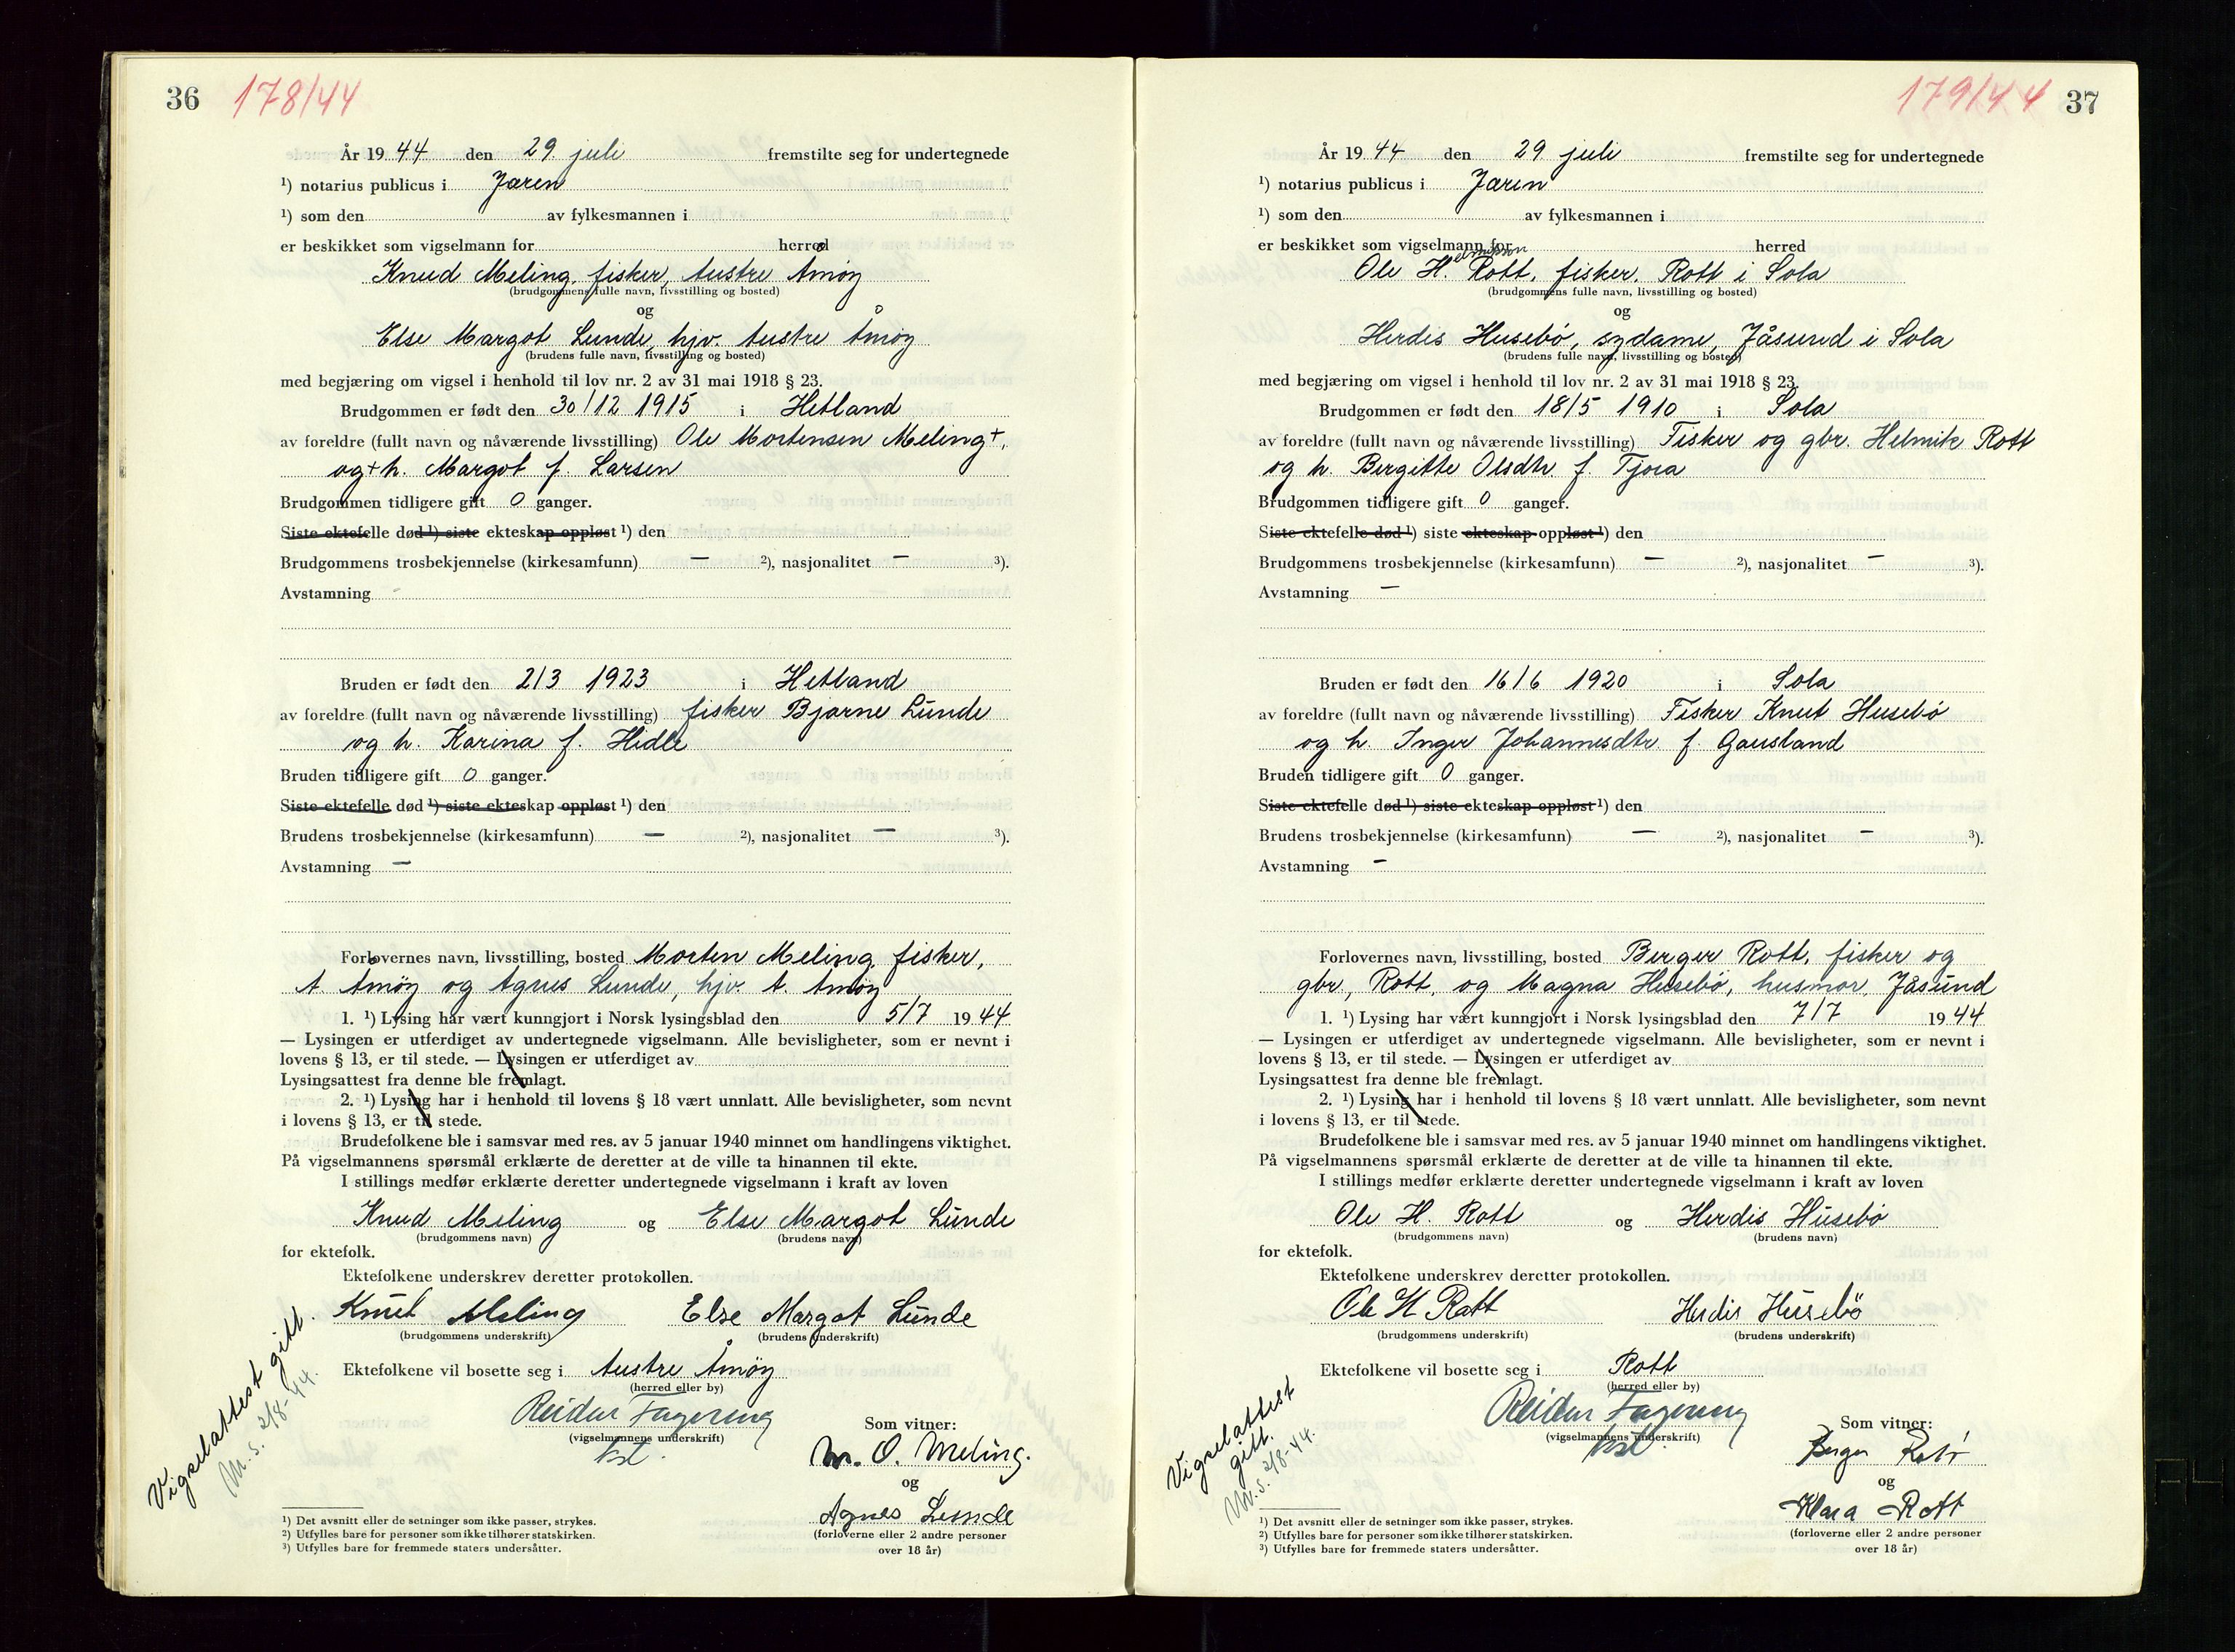 36 178/44
År 1944 den 29. juli fremstilte seg for undertegnede
¹) notarius publicus i Jæren
¹) som den av fylkesmannen i
er beskikket som vigselmann for herred
Knud Meling, fisker, Austre Åmøy
(brudgommens fulle navn, livsstilling og bosted)
og
Else Margot Lunde, hjv. Austre Åmøy
(brudens fulle navn, livsstilling og bosted)
med begjæring om vigsel i henhold til lov nr. 2 av 31 mai 1918 § 23.
Brudgommen er født den 30/12 1915 i Hetland
av foreldre (fullt navn og nåværende livsstilling) Ole Mortensen Meling+,
og+h. Margot f. Larsen
Brudgommen tidligere gift 0 ganger.
Siste ektefelle død ¹) siste ekteskap oppløst ¹) den
Brudgommens trosbekjennelse (kirkesamfunn) — ²), nasjonalitet — ³).
Avstamning -
Bruden er født den 2/3 1923 i Hetland
av foreldre (fullt navn og nåværende livsstilling) fisker Bjarne Lunde
og h. Karina f. Hidle
Bruden tidligere gift 0 ganger.
Siste ektefelle død ¹) siste ekteskap oppløst ¹) den
Brudens trosbekjennelse (kirkesamfunn) — ²), nasjonalitet — ³).
Avstamning —
Forlovernes navn, livsstilling, bosted Morten Meling, fisker,
A. Åmøy og Agnes Lunde, hjv. A. Åmøy
1. ¹) Lysing har vært kunngjort i Norsk lysingsblad den 5/7 1944
— Lysingen er utferdiget av undertegnede vigselmann. Alle bevisligheter, som er nevnt i
lovens § 13, er til stede. — Lysingen er utferdiget av
Lysingsattest fra denne ble fremlagt.
2. ¹) Lysing har i henhold til lovens § 18 vært unnlatt. Alle bevisligheter, som nevnt
i lovens § 13, er til stede.
Brudefolkene ble i samsvar med res. av 5 januar 1940 minnet om handlingens viktighet.
På vigselmannens spørsmål erklærte de deretter at de ville ta hinannen til ekte.
I stillings medfør erklærte deretter undertegnede vigselmann i kraft av loven
Knud Meling og Else Margot Lunde
(brudgommens navn) (brudens navn)
for ektefolk.
Ektefolkene underskrev deretter protokollen.
Knut Meling Else Margot Lunde
(brudgommens underskrift) (brudens underskrift)
Ektefolkene vil bosette seg i Austre Åmøy
(herred eller by)
Reidar Fagereng
(vigselmannens underskrift)
kst.
Som vitner:
M. O. Meling.
og
Agnes Lunde
(forloverne eller 2 andre personer
over 18 år)
Vigselattest gitt.
M.S. 2/8-44.
¹) Det avsnitt eller de setninger som ikke passer, strykes.
²) Utfylles bare for personer som ikke tilhører statskirken.
³) Utfylles bare for fremmede staters undersåtter.
179/44 37
År 1944 den 29 juli fremstilte seg for undertegnede
¹) notarius publicus i Jæren
¹) som den av fylkesmannen i
er beskikket som vigselmann for herred
Ole H. Rott, fisker, Rott i Sola
(brudgommens fulle navn, livsstilling og bosted)
og
Herdis Husebø, sydame, Jåsund i Sola
(brudens fulle navn, livsstilling og bosted)
med begjæring om vigsel i henhold til lov nr. 2 av 31 mai 1918 § 23.
Brudgommen er født den 18/5 1910 i Sola
av foreldre (fullt navn og nåværende livsstilling) Fisker og gbr. Helmik Rott
og h. Bergitte Olsdtr. f. Tjora
Brudgommen tidligere gift 0 ganger.
Siste ektefelle død ¹) siste ekteskap oppløst ¹) den
Brudgommens trosbekjennelse (kirkesamfunn) — ²), nasjonalitet — ³).
Avstamning —
Bruden er født den 16/6 1920 i Sola
av foreldre (fullt navn og nåværende livsstilling) Fisker Knut Husebø
og h. Inger Johannesdtr. f. Gausland
Bruden tidligere gift 0 ganger.
Siste ektefelle død ¹) siste ekteskap oppløst ¹) den
Brudens trosbekjennelse (kirkesamfunn) — ²), nasjonalitet — ³).
Avstamning -
Forlovernes navn, livsstilling, bosted Berger Rott, fisker og
gbr, Rott, og Magna Husebø, husmor, Jåsund
1. ¹) Lysing har vært kunngjort i Norsk lysingsblad den 7/7 1944
— Lysingen er utferdiget av undertegnede vigselmann. Alle bevisligheter, som er nevnt i
lovens § 13, er til stede. — Lysingen er utferdiget av
Lysingsattest fra denne ble fremlagt.
2. ¹) Lysing har i henhold til lovens § 18 vært unnlatt. Alle bevisligheter, som nevnt
i lovens § 13, er til stede.
Brudefolkene ble i samsvar med res. av 5 januar 1940 minnet om handlingens viktighet.
På vigselmannens spørsmål erklærte de deretter at de ville ta hinannen til ekte.
I stillings medfør erklærte deretter undertegnede vigselmann i kraft av loven
Ole H. Rott og Herdis Husebø
(brudgommens navn) (brudens navn)
for ektefolk.
Ektefolkene underskrev deretter protokollen.
Ole H Rott Herdis Husebö
(brudgommens underskrift) (brudens underskrift)
Ektefolkene vil bosette seg i Rott
(herred eller by)
Reidar Fagereng
(vigselmannens underskrift)
kst.
Som vitner:
Berger Rott
og
Klara Rott
(forloverne eller 2 andre personer
over 18 år)
Vigselattest
gitt.
M.S. 2/8-44.
¹) Det avsnitt eller de setninger som ikke passer, strykes.
²) Utfylles bare for personer som ikke tilhører statskirken.
³) Utfylles bare for fremmede staters undersåtter.